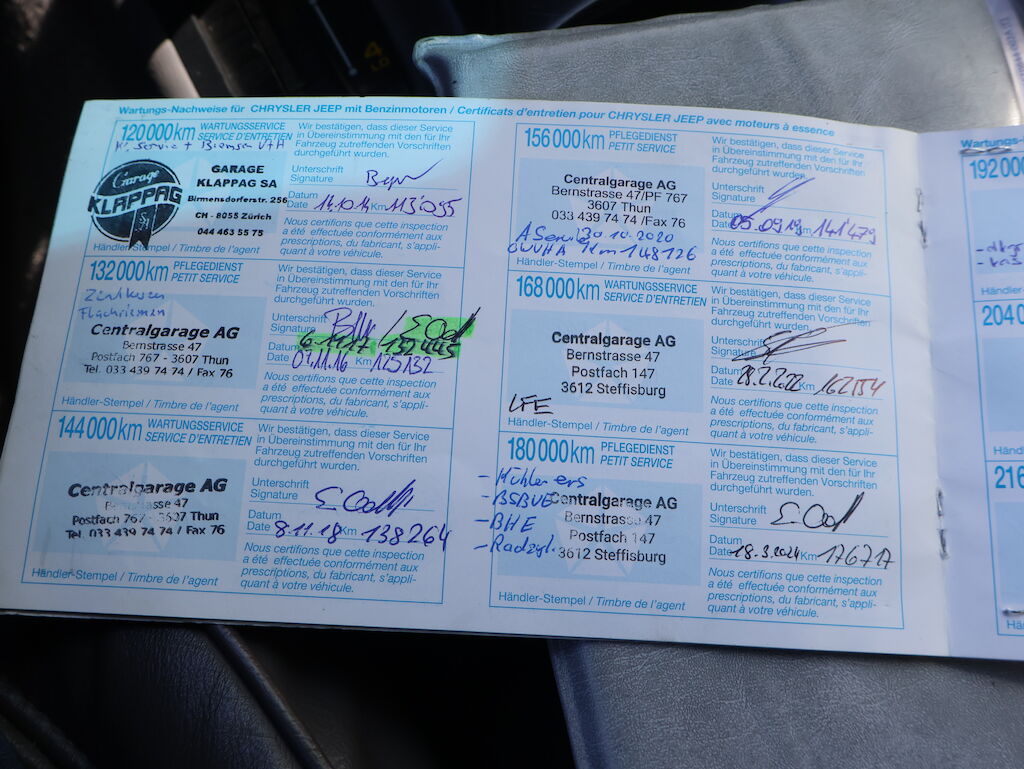 Wartungs-Nachweise für CHRYSLER JEEP mit Benzinmotoren / Certificats d'entretien pour CHRYSLER JEEP avec moteurs à essence
120 000 km WARTUNGSSERVICE
SERVICE D'ENTRETIEN
Service + Bremsen V+H
Garage
KLAPPAG
SA
GARAGE
KLAPPAG SA
Birmensdorferstr. 256
CH - 8055 Zürich
044 463 55 75
Händler-Stempel / Timbre de l'agent
Wir bestätigen, dass dieser Service
in Übereinstimmung mit den für Ihr
Fahrzeug zutreffenden Vorschriften
durchgeführt wurden.
Unterschrift
Signature
Datum
Date 14.10.14 Km 113'095
Nous certifions que cette inspection
a été effectuée conformément aux
prescriptions, du fabricant, s'appli-
quant à votre véhicule.
132 000 km PFLEGEDIENST
PETIT SERVICE
Zündkerzen
Flachriemen
Centralgarage AG
Bernstrasse 47
Postfach 767 - 3607 Thun
Tel. 033 439 74 74 / Fax 76
Händler-Stempel / Timbre de l'agent
Wir bestätigen, dass dieser Service
in Übereinstimmung mit den für Ihr
Fahrzeug zutreffenden Vorschriften
durchgeführt wurden.
Unterschrift
Signature
6.11.17 132445
Datum
Date 07.11.16 Km 125132
Nous certifions que cette inspection
a été effectuée conformément aux
prescriptions, du fabricant, s'appli-
quant à votre véhicule.
144 000 km WARTUNGSSERVICE
SERVICE D'ENTRETIEN
Centralgarage AG
Bernstrasse 47
Postfach 767 - 3607 Thun
Tel. 033 439 74 74 / Fax 76
Händler-Stempel / Timbre de l'agent
Wir bestätigen, dass dieser Service
in Übereinstimmung mit den für Ihr
Fahrzeug zutreffenden Vorschriften
durchgeführt wurden.
Unterschrift
Signature
Datum
Date 8.11.18 Km 138264
Nous certifions que cette inspection
a été effectuée conformément aux
prescriptions, du fabricant, s'appli-
quant à votre véhicule.
156 000 km PFLEGEDIENST
PETIT SERVICE
Centralgarage AG
Bernstrasse 47/PF 767
3607 Thun
033 439 74 74 /Fax 76
A Service 30.10.2020
km 148126
Händler-Stempel / Timbre de l'agent
Wir bestätigen, dass dieser Service
in Übereinstimmung mit den für Ihr
Fahrzeug zutreffenden Vorschriften
durchgeführt wurden.
Unterschrift
Signature
Datum
Date 05.09.19 Km 141'479
Nous certifions que cette inspection
a été effectuée conformément aux
prescriptions, du fabricant, s'appli-
quant à votre véhicule.
168 000 km WARTUNGSSERVICE
SERVICE D'ENTRETIEN
Centralgarage AG
Bernstrasse 47
Postfach 147
3612 Steffisburg
LFE
Händler-Stempel / Timbre de l'agent
Wir bestätigen, dass dieser Service
in Übereinstimmung mit den für Ihr
Fahrzeug zutreffenden Vorschriften
durchgeführt wurden.
Unterschrift
Signature
Datum
Date 28.2.2022 Km 162154
Nous certifions que cette inspection
a été effectuée conformément aux
prescriptions, du fabricant, s'appli-
quant à votre véhicule.
180 000 km PFLEGEDIENST
PETIT SERVICE
- Kühler ers
- BSBUE
- BHE
- Radzyl.
Centralgarage AG
Bernstrasse 47
Postfach 147
3612 Steffisburg
Händler-Stempel / Timbre de l'agent
Wir bestätigen, dass dieser Service
in Übereinstimmung mit den für Ihr
Fahrzeug zutreffenden Vorschriften
durchgeführt wurden.
Unterschrift
Signature
Datum
Date 18.3.2024 Km 176717
Nous certifions que cette inspection
a été effectuée conformément aux
prescriptions, du fabricant, s'appli-
quant à votre véhicule.
Wartungs-
192 000
204 0
216